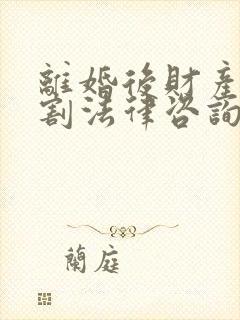 離婚後財產
割法律咨詢
蘭庭